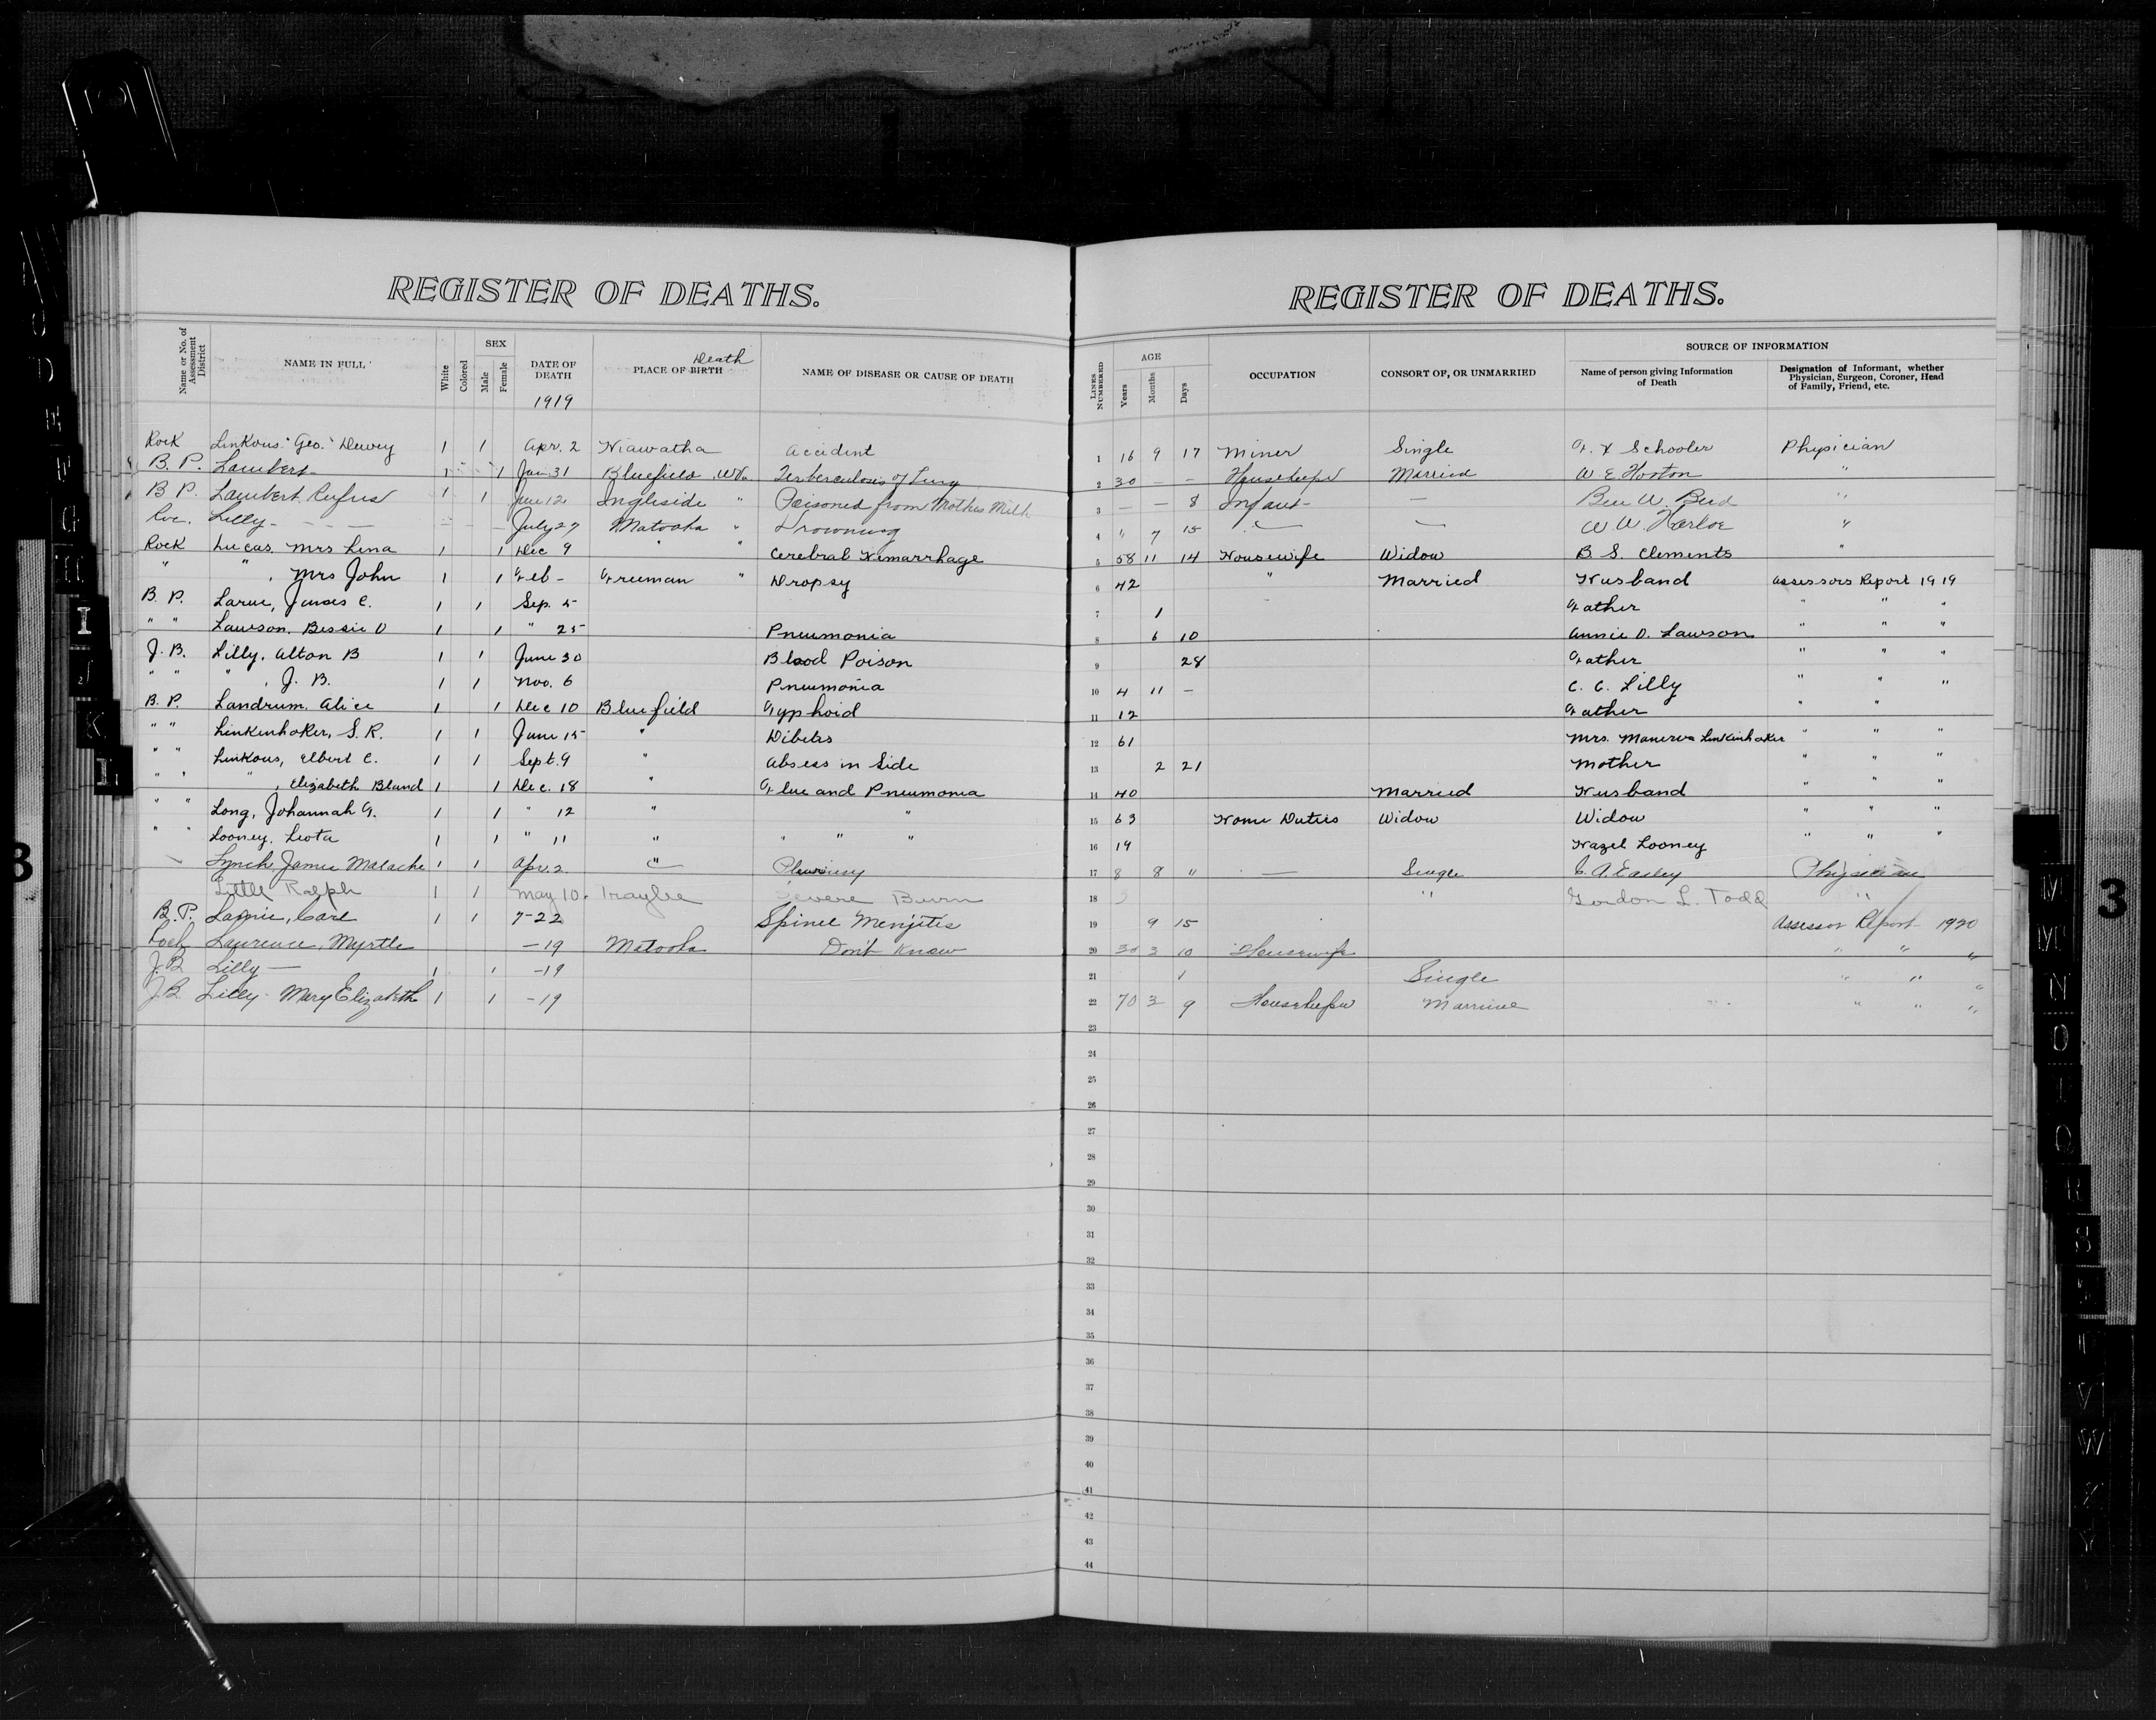 REGISTER OF DEATHS.
Name or No. of Assessment District
NAME IN FULL
White
Colored
SEX
Male
Female
DATE OF DEATH
1919
Death
PLACE OF BIRTH
NAME OF DISEASE OR CAUSE OF DEATH
Rock Linkous "Geo." Dewey 1 1 Apr. 2 Hiawatha Accident
B. P. Lambert 1 1 Jan 31 Bluefield W Va. Terberculosis of Lung
B P. Lambert Rufus 1 1 12 Ingleside " Poisoned from Mothers Milk
Lilly - July 27 Matoaka " Drowning
Rock Lucas, Mrs Lena 1 1 Dec 9 " " Cerebral Hemarrhage
" " , Mrs John 1 1 Feb - Freeman " Dropsy
B. P. Larue, James C. 1 1 Sep. 5
" " Lawson, Bessie O 1 1 " 25 Pneumonia
J. B. Lilly, Alton B 1 1 June 30 Blood Poison
" " " , J. B. 1 1 Nov. 6 Pneumonia
B. P. Landrum, Alice 1 1 Dec 10 Bluefield Typhoid
" " Linkinhoker, S. R. 1 1 June 15 " Dibetes
" " Linkous, Elbert C. 1 1 Sept. 9 " Absess in Side
" " " , Elizabeth Bland 1 1 Dec. 18 " Flue and Pneumonia
" " Long, Johannah G. 1 1 " 12 " " "
" " Looney, Leota 1 1 " 11 " " " "
Lynch, James Malache 1 1 Apr. 2 " Pleurisy
Little Ralph 1 1 May 10. Severe Burn
B. P. Carl 1 1 7-22 Spinel Menjites
Rock Laurence, Myrtle -19 Matoaka Don't Know
J. B Lilly — 1 1 -19
J. B. Lilly - Mary Elizabeth 1 1 -19
REGISTER OF DEATHS.
LINES NUMBERED
AGE
Years
Months
Days
OCCUPATION
CONSORT OF, OR UNMARRIED
SOURCE OF INFORMATION
Name of person giving Information of Death
Designation of Informant, whether Physician, Surgeon, Coroner, Head of Family, Friend, etc.
1 16 9 17 Miner Single Schooler Physician
2 30 - - Housekeeper Married W. E. Horton "
3 — - 8 Infant — Ben W. Bird "
4 " 7 15 — — W W. Harloe "
5 58 11 14 Housewife Widow B. S. Clements "
6 42 " Married Husband Assessors Report 1919
7 1 Father " " "
8 6 10 Annie O. Lawson " " "
9 28 Father " " "
10 4 11 - C. C. Lilly " " "
11 12 Father " "
12 61 Mrs. Manerva Linkinhoker " " "
13 2 21 Mother " " "
14 40 Married Husband " " "
15 63 Home Duties Widow Widow " " "
16 19 Hazel Looney " " "
17 8 8 " — Single C. A. Easley Physician
18 " Gordon L. Todd "
19 9 15 Assessor Report 1920
20 3 10 Housewife " " "
21 1 Single " " "
22 70 3 9 Housekeeper Married " " "
23
24
25
26
27
28
29
30
31
32
33
34
35
36
37
38
39
40
41
42
43
44
3
3
I
J
K
L
M
N
O